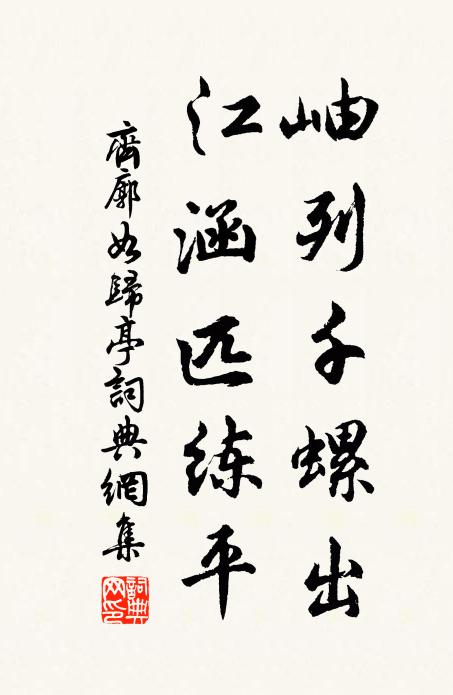 岫列千螺出
江涵匹练平
齊廓如歸亭詞典網集
詞典網印